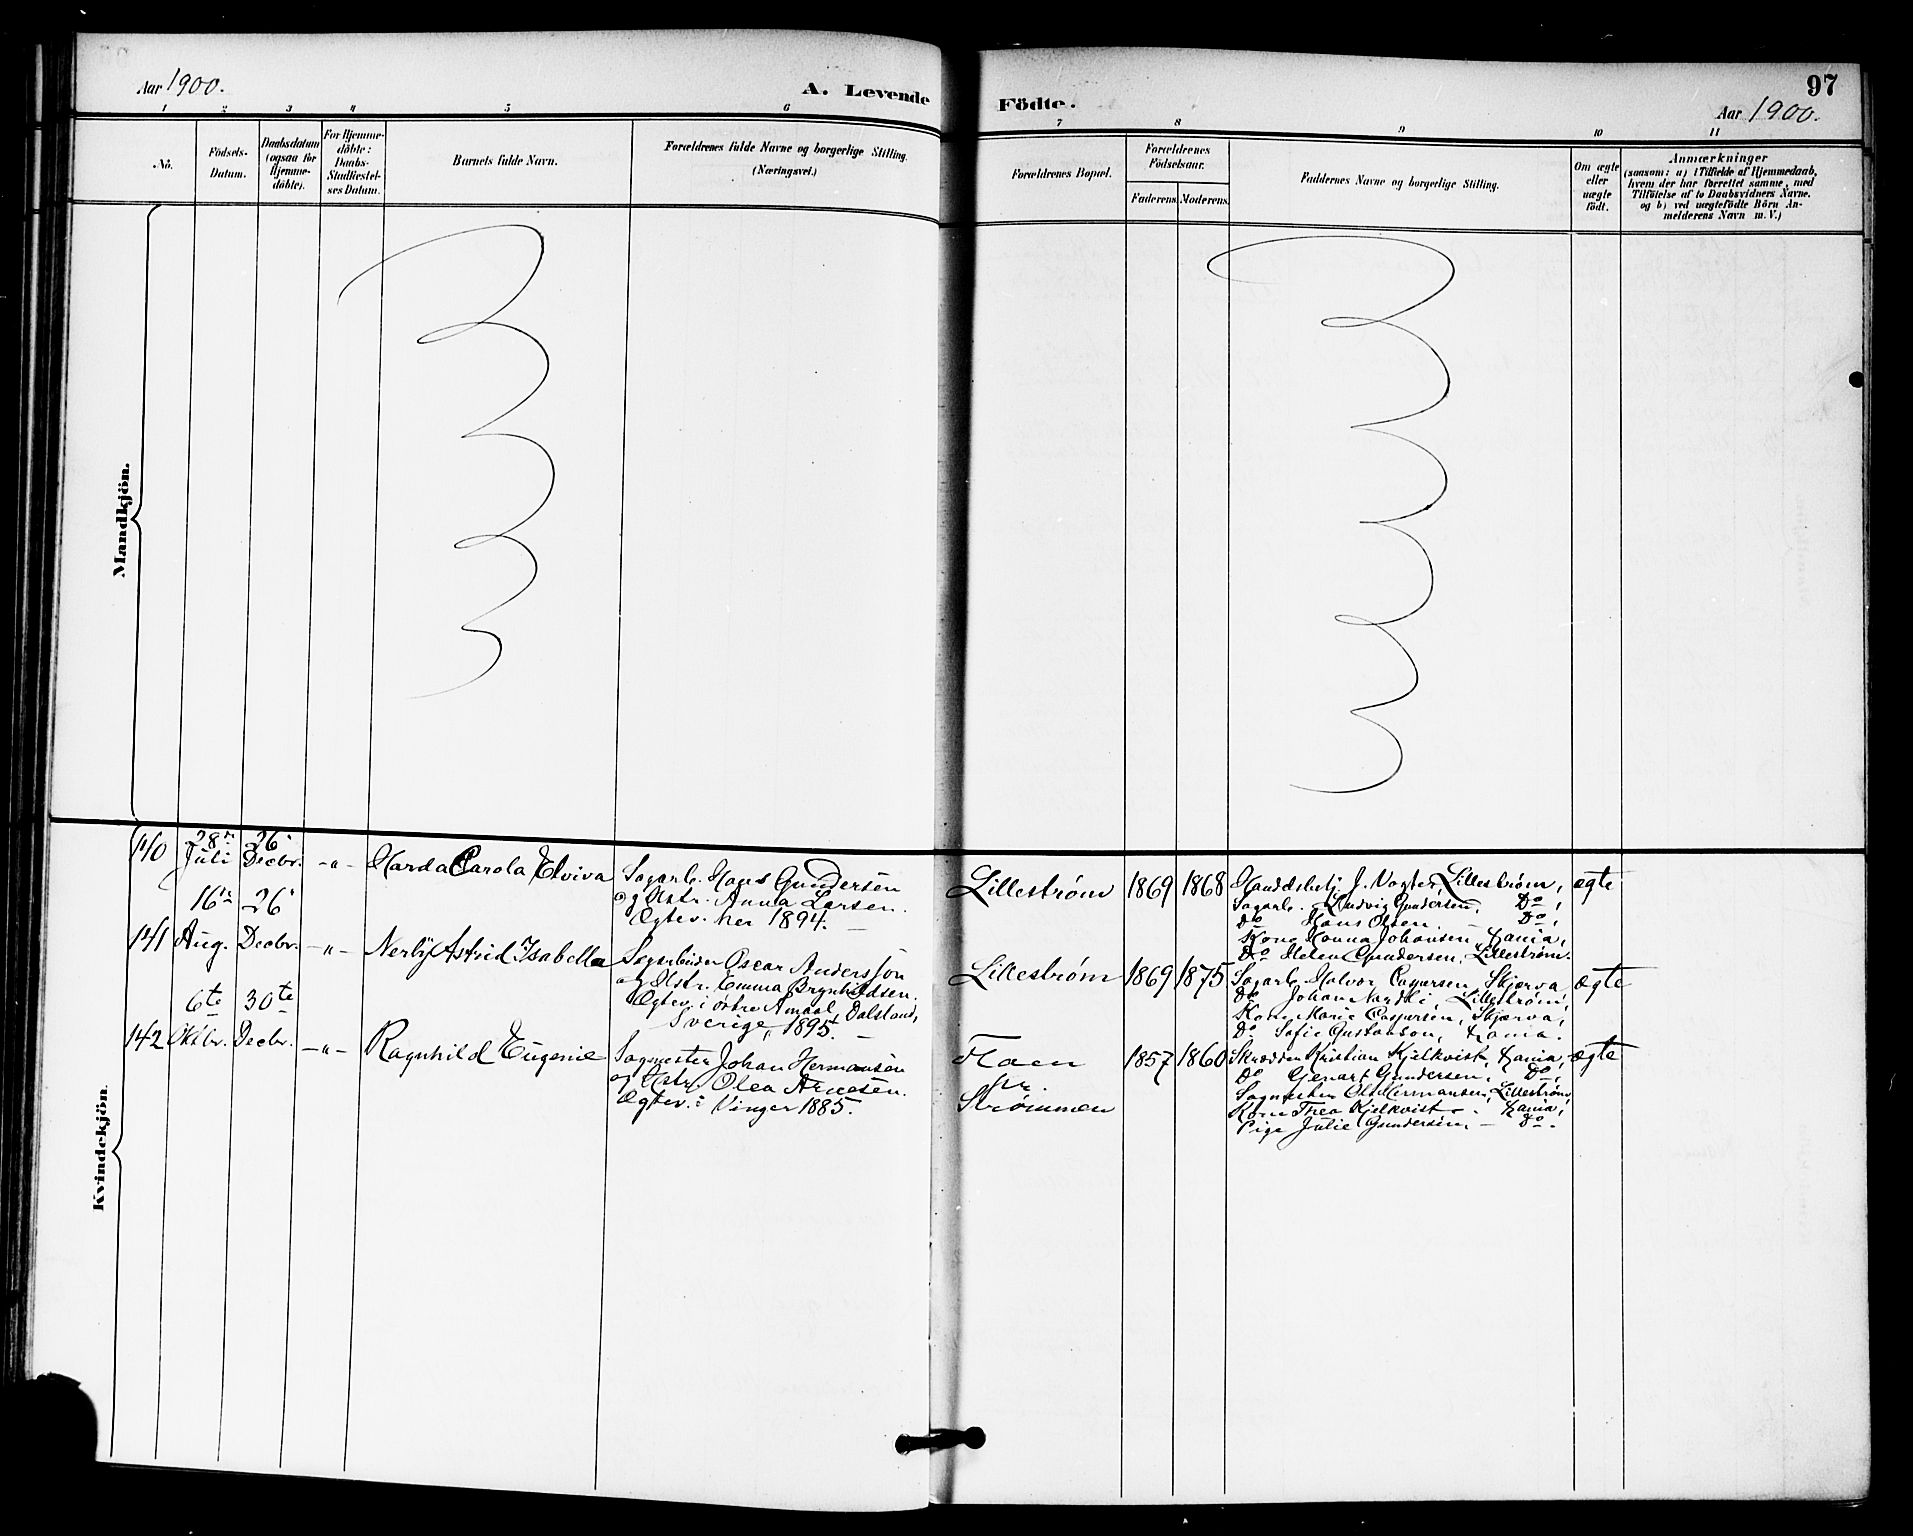 Aar 1900.
A. Levende
Födte.
97
Aar 1900.
1 2 3 4 5 6 7 8 9 10 11
No.
Födsels-
Datum.
Daabsdatum
(ogsaa for
Hjemme-
döbte).
For Hjemme-
döbte:
Daabs-
Stadfæstel-
ses Datum.
Barnets fulde Navn.
Forældrenes fulde Navne og borgerlige Stilling.
(Næringsvei.)
Forældrenes Bopæl.
Forældrenes
Födselsaar.
Faderens. Moderens.
Faddernes Navne og borgerlige Stilling.
Om ægte
eller
uægte
födt.
Anmærkninger
(saasom: a) i Tilfælde af Hjemmedaab,
hvem der har forrettet samme, med
Tilföielse af to Daabsvidners Navne.
og b) ved uægtefödte Börn An-
melderens Navn m. V.)
Mandkjön.
Kvindekjön.
140
28de
Juli
26.
Decbr.
-"-
Harda Carola Elvira
Sagarb. Hans Gundersen
og Hstr. Anna Larsen.
Ægtev. her 1894. —
Lillestrøm
1869
1868
J. Vogter, Lillestrøm,
Sagarb. Ludvig Gundersen, Do,
Do Hans Olsen Do,
Kone Hanna Johansen, Xania,
Do Helen Gundersen, Lillestrøm.
ægte
141
16de
Aug.
26.
Decbr.
-"-
Nerly Astrid Isabella
Sagarbeider Oscar Andersson
og Hstr. Emma Brynhildsen.
Ægtev. i Amaal, Dalsland,
Sverige, 1895. —
Lillestrøm
1869
1875
Sagarb. Halvor Caspersen, Skjærva
Do Johan Lillestrøm,
Kone Marie Caspersen, Skjærva,
Do Sofie Gustavson, Xania.
ægte
142
6te
Oktbr.
30te
Decbr.
-"-
Ragnhild Eugenie
Sagmester Johan Hermansen
og Hstr. Olea Arnesen.
Ægtev. i Vinger 1885.
Flaen
pr.
Strømmen
1857
1860
Skrædder Kristian Kjelkvist, Xania,
Do Gerhart Gundersen, Do,
Sagmester Olaf Hermansen, Lillestrøm,
Kone Thea Kjelkvist - Xania,
Pige Julie Gundersen, — Do.
ægte